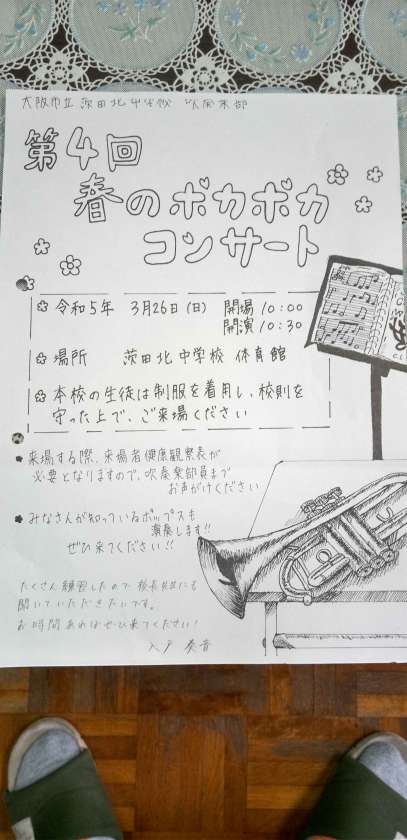 大阪市立 茨田北中学校 吹奏楽部
第4回
春のポカポカ
コンサート
令和5年 3月26日(日) 開場10:00
開演10:30
場所 茨田北中学校 体育館
本校の生徒は制服を着用し、校則を
守った上で、ご来場ください
来場する際、来場者健康観察表が
必要となりますので、吹奏楽部員まで
お声がけください
みなさんが知っているポップスも
演奏します!!
ぜひ来てください!!
たくさん練習したので校長先生にも
聞いていただきたいです。
お時間あればぜひ来てください!